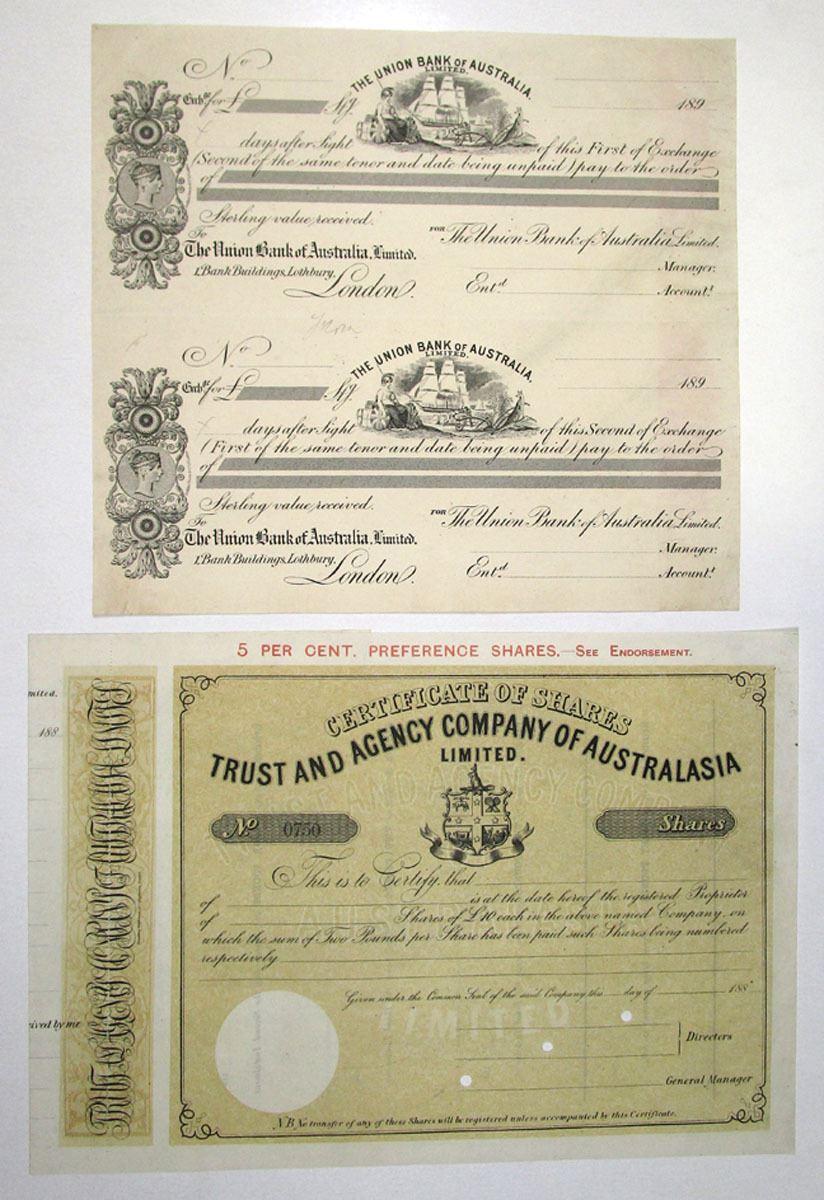 No
THE UNION BANK OF AUSTRALIA,
LIMITED.
Exche for £ Stg. 189
days after Sight of this First of Exchange
(Second of the same tenor and date being unpaid) pay to the order
of
Sterling value received.
To
The Union Bank of Australia, Limited.
1, Bank Buildings, Lothbury,
London.
FOR The Union Bank of Australia Limited.
Manager.
Entd. Accountt.
No
THE UNION BANK OF AUSTRALIA,
LIMITED.
Exche for £ Stg. 189
days after Sight of this Second of Exchange
(First of the same tenor and date being unpaid) pay to the order
of
Sterling value received.
To
The Union Bank of Australia, Limited.
1, Bank Buildings, Lothbury,
London.
FOR The Union Bank of Australia Limited.
Manager.
Entd. Accountt.
5 PER CENT. PREFERENCE SHARES.—SEE ENDORSEMENT.
mited.
188
ived by me
TRUST & AGENCY COMPANY OF AUSTRALASIA LIMITED
CERTIFICATE OF SHARES
TRUST AND AGENCY COMPANY OF AUSTRALASIA
LIMITED.
No 0750 Shares
This is to Certify, that
of is at the date hereof the registered Proprietor
of Shares of £10 each in the above named Company, on
which the sum of Two Pounds per Share has been paid such Shares being numbered
respectively
Given under the Common Seal of the said Company this day of 188
LIMITED
Directors
General Manager
N.B. No transfer of any of these Shares will be registered unless accompanied by this Certificate.